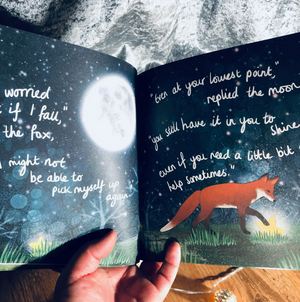 worried
if I fail,"
the fox,
might not
be able to
pick myself up
again
"Even at your lowest point,"
replied the moon
"you still have it in you to
shine
even if you need a little bit
help sometimes."